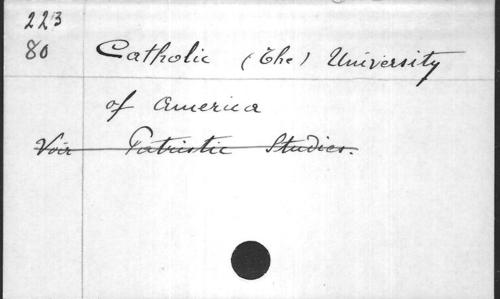 223
80 Catholic (The) University
of America
Voir Patristic Studies.